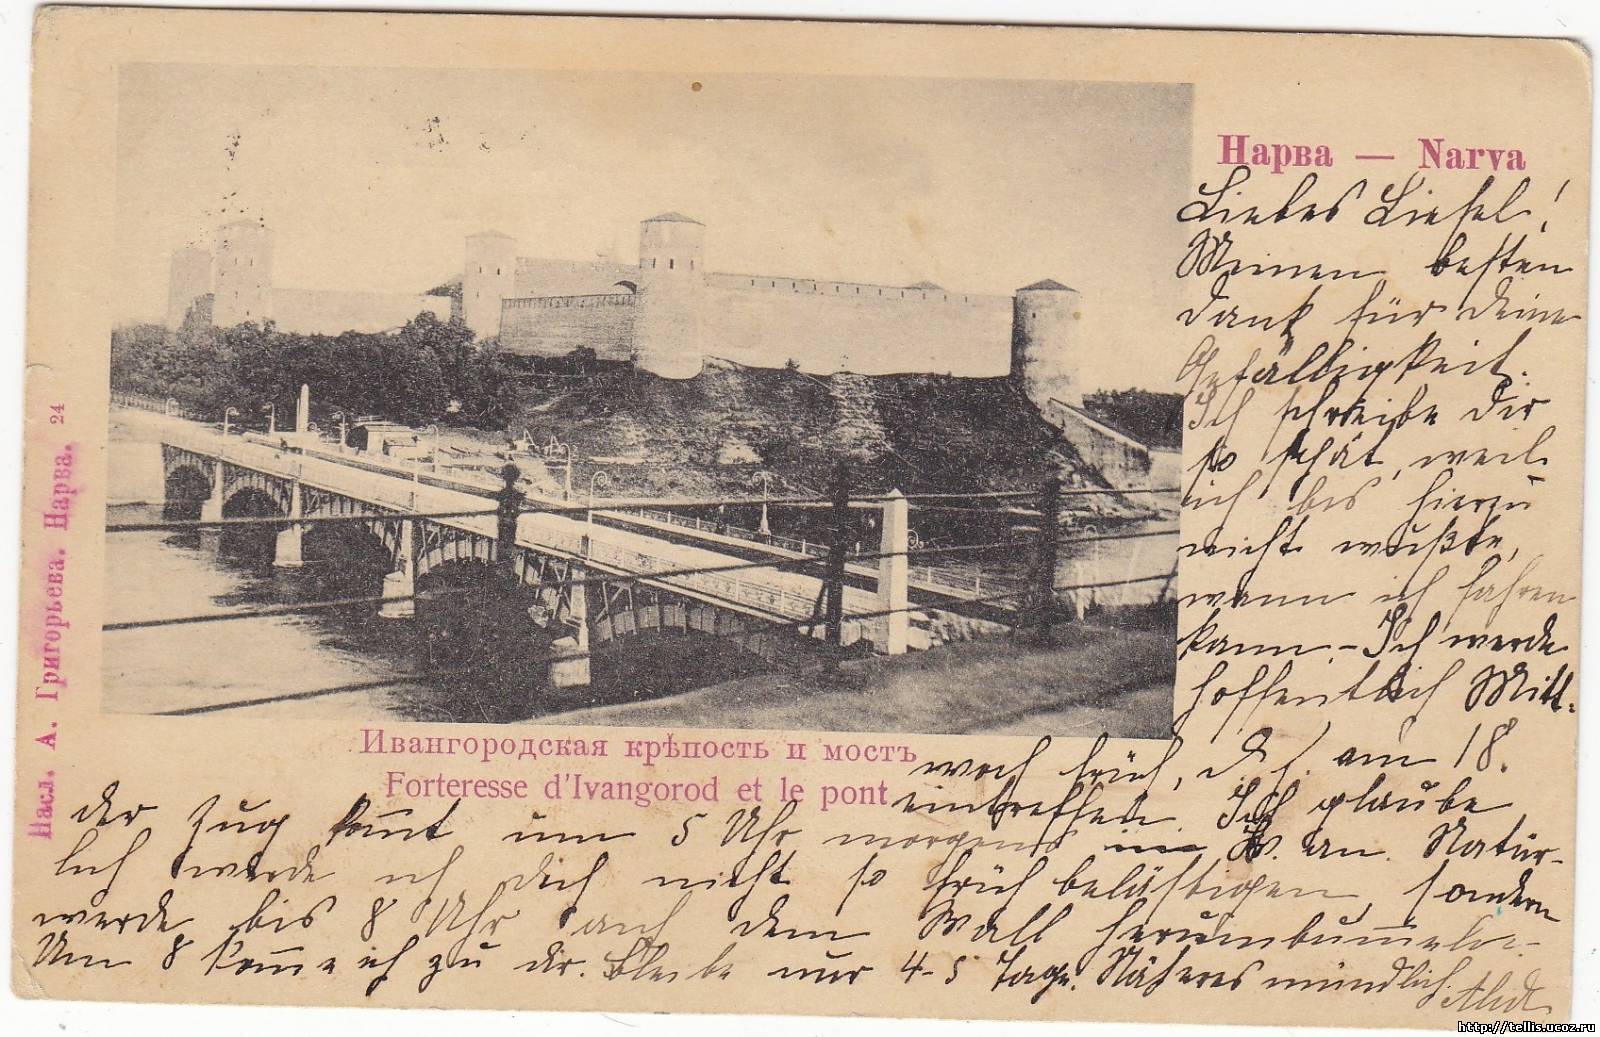 Нарва — Narva
Liebes Liesel!
Meinen besten
Dank für Deine
Gefälligkeit.
Ich schreibe Dir
so spät, weil
ich bis hierzu
nicht wußte,
wann ich fahren
kann. - Ich werde
hoffentlich Mitt-
woch früh, d. h. am 18.
eintreffen. Ich glaube
der Zug kom̅t um 5 Uhr morgens an. Natür-
lich werde ich Dich nicht so früh belästigen, sondern
werde bis 8 Uhr auf dem Wall herumbum̅eln.
Um 8 kom̅e ich zu dir. Bleibe nur 4-5 Tage. Näheres mündlich.
Ивангородская крѣпость и мостъ
Forteresse d'Ivangorod et le pont
Насл. А. Григорьева. Нарва. 24
http://tellis.ucoz.ru